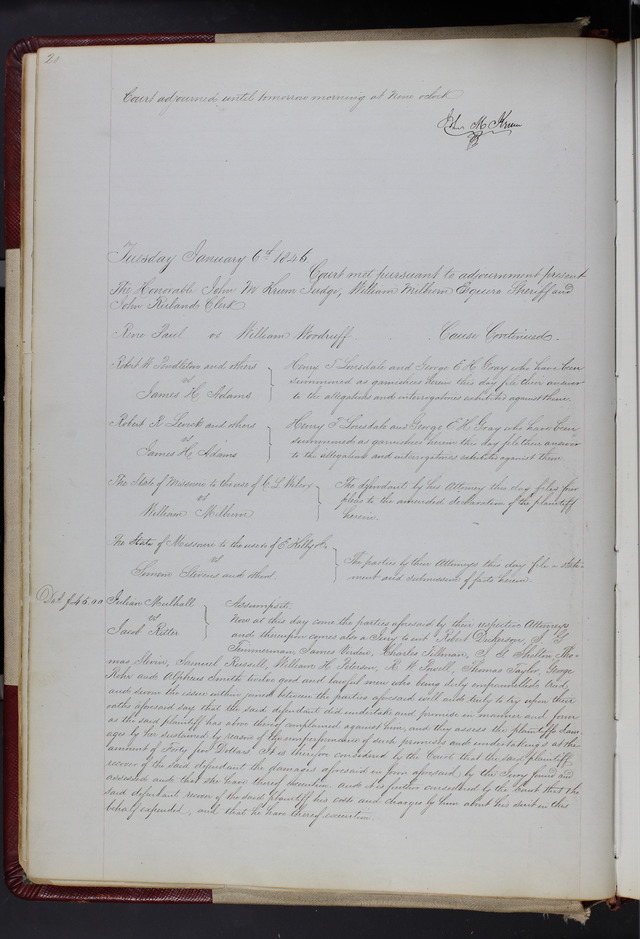 Court adjourned until tomorrow morning at Nine oclock
John M Krum
Tuesday January 6th 1846
Court met pursuant to adjournment present
The Honorable John M Krum Judge, William Milburn Esquire Sheriff and
John Ruland Clerk
Rene Paul vs William Woodruff. Cause Continued.
Robert H Pendleton and others
vs
James H Adams
Henry T Lonsdale and George E H Gray who have been
summoned as garnishees herein this day file their answer
to the allegations and interrogatories exhibited against them.
Robert R and others
vs
James H Adams
Henry T Lonsdale and George E H Gray who have been
summoned as garnishees herein this day file their answer
to the allegations and interrogatories exhibited against them.
The State of Missouri to the use of C. L
vs
William Milburn
The defendant by his Attorney this day files
pleas to the amended declaration of the plaintiff
herein.
The State of Missouri to the use of E.
vs
Simon Stevens and others.
The parties by their Attorneys this day file a state-
ment and submission of facts herein.
$45.00
Julian Mulhall
vs
Jacob Ritter
Assumpsit.
Now at this day come the parties aforesaid by their respective Attorneys
and thereupon comes also a Jury to wit Robert Dickerson, J G
Timmerman, James Verdin, Charles Tillman, T G Tho-
mas Samuel Russell, William H Peterson, R W Powell, Thomas Taylor, George
Rohr and Alpheus Smith twelve good and lawful men who being duly empannelled tried
and sworn the issue within joined between the parties aforesaid well and truly to try upon their
oaths aforesaid say that the said defendant did undertake and promise in manner and form
as the said plaintiff has above thereof complained against him, and they assess the plaintiffs dam-
ages by her sustained by reason of the nonperformance of such promises and undertakings at the
amount of Forty five Dollars. It is therefore considered by the Court that the said plaintiff
recover of the said defendant the damages aforesaid in form aforesaid by the Jury found and
assessed and that she have thereof execution. And it is further considered by the Court that the
said defendant recover of the said plaintiff his costs and charges by him about his suit in this
behalf expended, and that he have thereof execution.